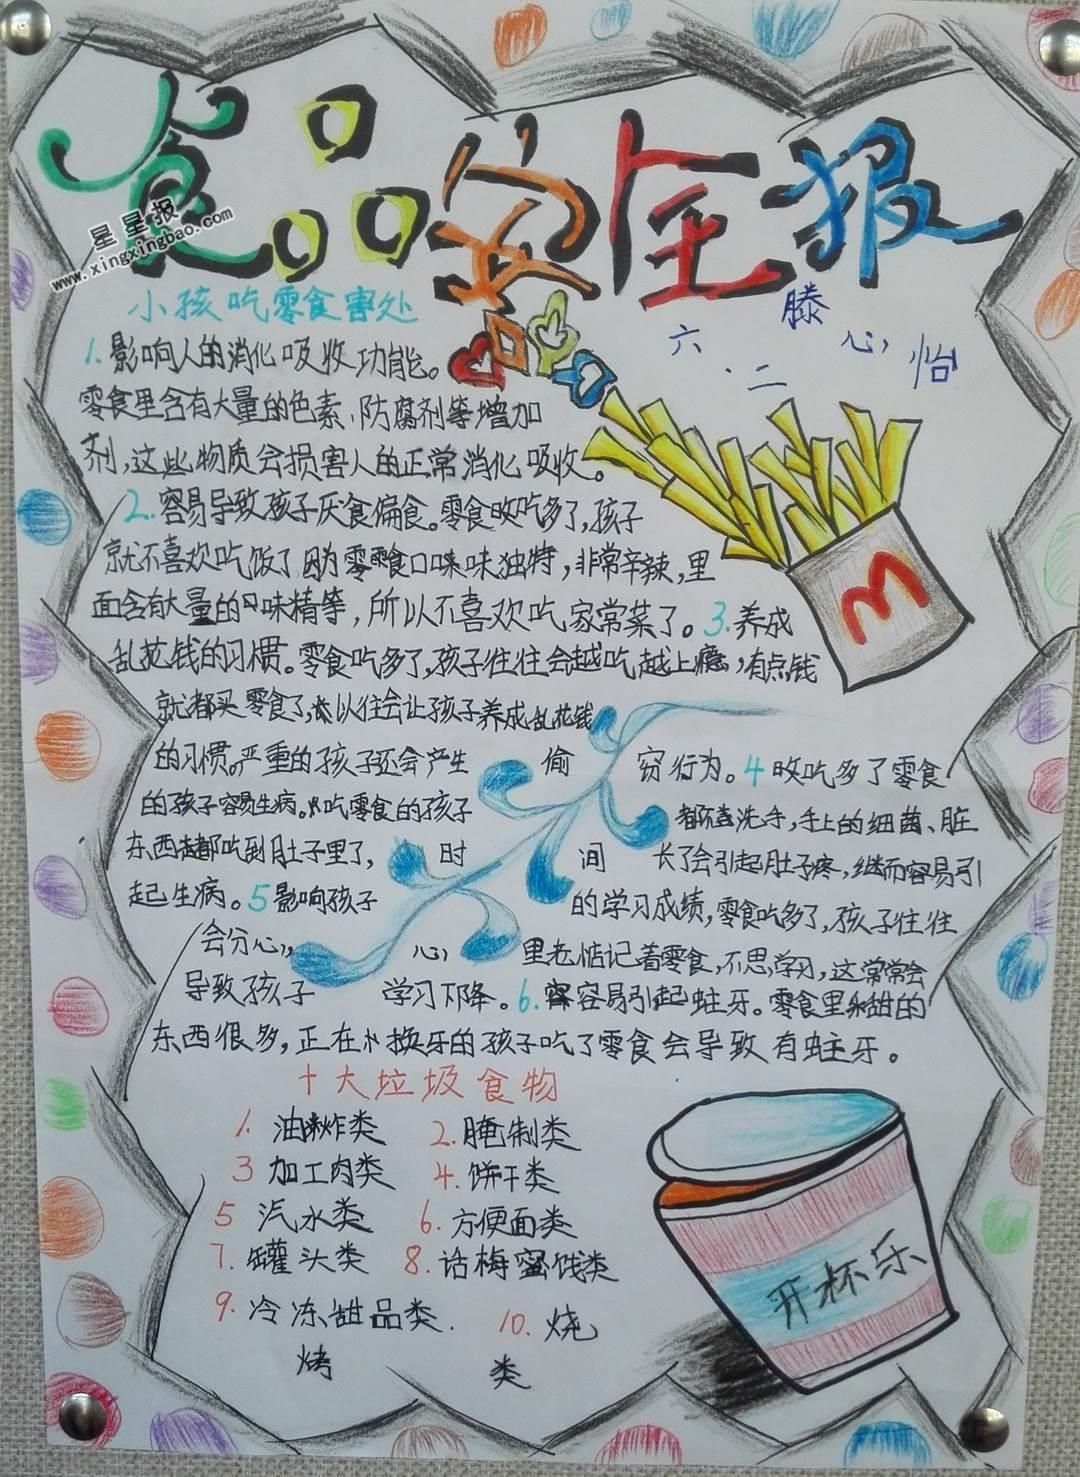 食品安全报
星星报
www.xingxingbao.com
小孩吃零食害处
六.二
滕心怡
1.影响人的消化吸收功能。
零食里含有大量的色素、防腐剂等增加
剂,这些物质会损害人的正常消化吸收。
2.容易导致孩子厌食偏食。零食吃多了,孩子
就不喜欢吃饭了因为零食口味味独特,非常辛辣,里
面含有大量的口味精等,所以不喜欢吃家常菜了。3.养成
乱花钱的习惯。零食吃多了,孩子往往会越吃越上瘾,有点钱
就都买零食了,长以往会让孩子养成乱花钱
的习惯。严重的孩子还会产生 偷 窃行为。4吃多了零食
的孩子容易生病。吃零食的孩子 都不洗手,手上的细菌、脏
东西都吃到肚子里了, 时 间 长了会引起肚子疼,继而容易引
起生病。5影响孩子 的学习成绩,零食吃多了,孩子往往
会分心, 心 里老惦记着零食,不思学习,这常常会
导致孩子 学习下降。6.容易引起蛀牙。零食里甜的
东西很多,正在换牙的孩子吃了零食会导致有蛀牙。
十大垃圾食物
1. 油炸类 2.腌制类
3 加工肉类 4.饼干类
5 汽水类 6.方便面类
7.罐头类 8.话梅蜜饯类
9.冷冻甜品类. 10.烧
烤 类
M
开杯乐